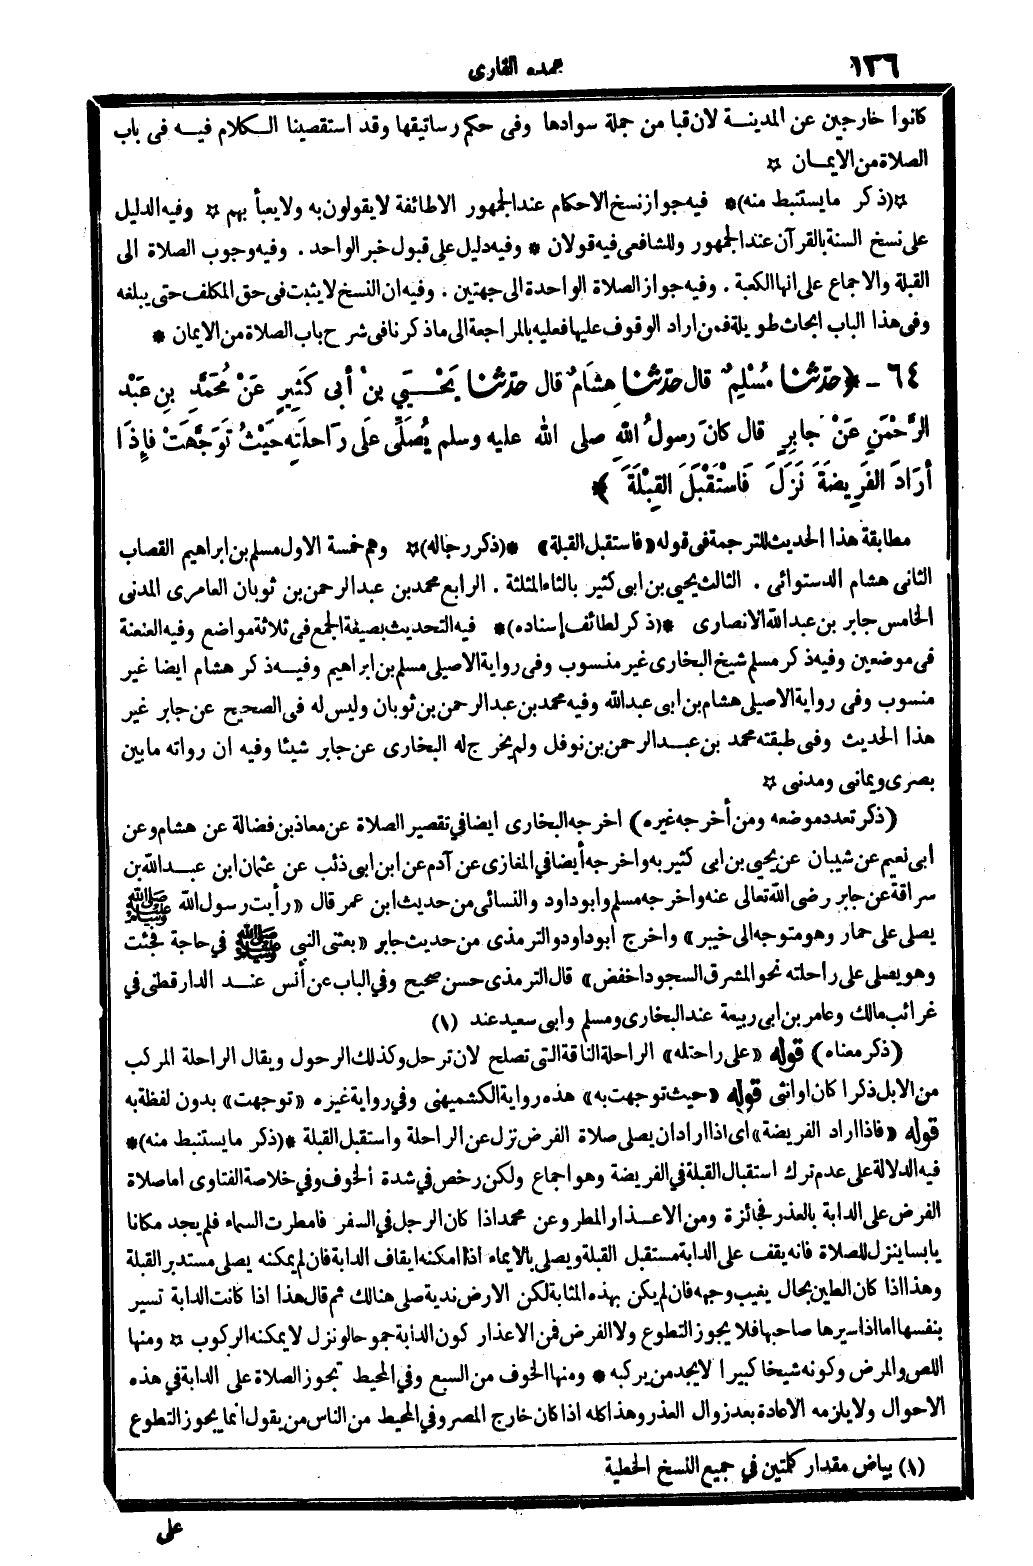 ١٣٦
عمده القارى
كانوا خارجين عن المدينة لان قبا من جملة سوادها وفى حكم رساتيقها وقد استقصينا الكلام فيه فى باب
الصلاة من الايمان ☆
☆(ذكر مايستنبط منه)* فيه جواز نسخ الاحكام عند الجمهور الاطائفة لا يقولون به ولايعبأ بهم ☆ وفيه الدليل
على نسخ السنة بالقرآن عند الجمهور وللشافعى فيه قولان * وفيه دليل على قبول خبر الواحد . وفيه وجوب الصلاة الى
القبلة والاجماع على انها الكعبة . وفيه جواز الصلاة الواحدة الى جهتين . وفيه ان النسخ لايثبت فى حق المكلف حتى يبلغه
وفى هذا الباب ابحاث طويلة فمن اراد الوقوف عليها فعليه بالمراجعة الى ماذكرنا فى شرح باب الصلاة من الايمان *
٦٤ - ﴿حدّثنا مُسْلِمٌ قال حدّثنا هِشَامٌ قال حدّثنا يَحْيَي بنُ أبى كَثِيرٍ عَنْ مُحَمَّدِ بنِ عَبْدِ
الرَّحْمَنِ عَنْ جابِرٍ قال كانَ رسولُ اللهِ صلى الله عليه وسلم يُصَلِّى عَلَى رَاحلَتِهِ حَيْثُ تَوَجَّهَتْ فإِذَا
أرَادَ الفَرِيضَةَ نَزَلَ فَاسْتَقْبَلَ القِبْلَةَ ﴾*
مطابقة هذا الحديث للترجمة فى قوله «فاستقبل القبلة» *(ذكر رجاله)☆ وهم خمسة الاول مسلم بن ابراهيم القصاب
الثانى هشام الدستوائى . الثالث يحيى بن ابى كثير بالثاء المثلثة . الرابع محمد بن عبد الرحمن بن ثوبان العامرى المدنى
الخامس جابر بن عبد الله الانصارى *(ذكر لطائف إسناده)* فيه التحديث بصيغة الجمع فى ثلاثة مواضع وفيه العنعنة
فى موضعين وفيه ذكر مسلم شيخ البخارى غير منسوب وفى رواية الاصيلى مسلم بن ابراهيم وفيه ذكر هشام ايضا غير
منسوب وفى رواية الاصيلى هشام بن ابى عبد الله وفيه محمد بن عبد الرحمن بن ثوبان وليس له فى الصحيح عن جابر غير
هذا الحديث وفى طبقته محمد بن عبد الرحمن بن نوفل ولم يخرج له البخارى عن جابر شيئا وفيه ان رواته مابين
بصرى ويمانى ومدنى ☆
(ذكر تعدد موضعه ومن أخرجه غيره) اخرجه البخارى ايضا في تقصير الصلاة عن معاذ بن فضالة عن هشام وعن
ابى نعيم عن شيبان عن يحيى بن ابى كثير به واخرجه أيضا في المغازى عن آدم عن ابن ابى ذئب عن عثمان ابن عبد الله بن
سراقة عن جابر رضى الله تعالى عنه واخرجه مسلم وابو داود والنسائى من حديث ابن عمر قال «رأيت رسول الله ﷺ
يصلى على حمار وهو متوجه الى خيبر» واخرج ابو داود والترمذى من حديث جابر «بعثنى النبى ﷺ في حاجة فجئت
وهو يصلى على راحلته نحو المشرق السجود اخفض» قال الترمذى حسن صحيح وفي الباب عن أنس عند الدارقطنى في
غرائب مالك وعامر بن ابى ربيعة عند البخارى ومسلم وابى سعيد عند (١)
(ذكر معناه) قوله «على راحتله» الراحلة الناقة التى تصلح لان ترحل وكذلك الرحول ويقال الراحلة المركب
من الابل ذكرا كان او انثى قوله «حيث توجهت به» هذه رواية الكشميهنى وفي رواية غيره «توجهت» بدون لفظة به
قوله «فاذا اراد الفريضة» اى اذا ارادان يصلى صلاة الفرض نزل عن الراحلة واستقبل القبلة *(ذكر مايستنبط منه)*
فيه الدلالة على عدم ترك استقبال القبلة في الفريضة وهو اجماع ولكن رخص في شدة الخوف وفي خلاصة الفتاوى اما صلاة
الفرض على الدابة بالعذر فجائزة ومن الاعذار المطر وعن محمد اذا كان الرجل في السفر فامطرت السماء فلم يجد مكانا
يابسا ينزل للصلاة فانه يقف على الدابة مستقبل القبلة ويصلى بالايماء اذا امكنه ايقاف الدابة فان لم يمكنه يصلى مستدبر القبلة
وهذا اذا كان الطين بحال يغيب وجهه فان لم يكن بهذه المثابة لكن الارض ندية صلى هنالك ثم قال هذا اذا كانت الدابة تسير
بنفسها اما اذا سيرها صاحبها فلا يجوز التطوع ولا الفرض فمن الاعذار كون الدابة جموحا لو نزل لا يمكنه الركوب ☆ ومنها
اللص والمرض وكونه شيخا كبيرا لا يجد من يركبه * ومنها الخوف من السبع وفي المحيط تجوز الصلاة على الدابة في هذه
الاحوال ولا يلزمه الاعادة بعد زوال العذر وهذا كله اذا كان خارج المصر وفي المحيط من الناس من يقول انما يجوز التطوع
(١) بياض مقدار كلمتين في جميع النسخ الخطية
على